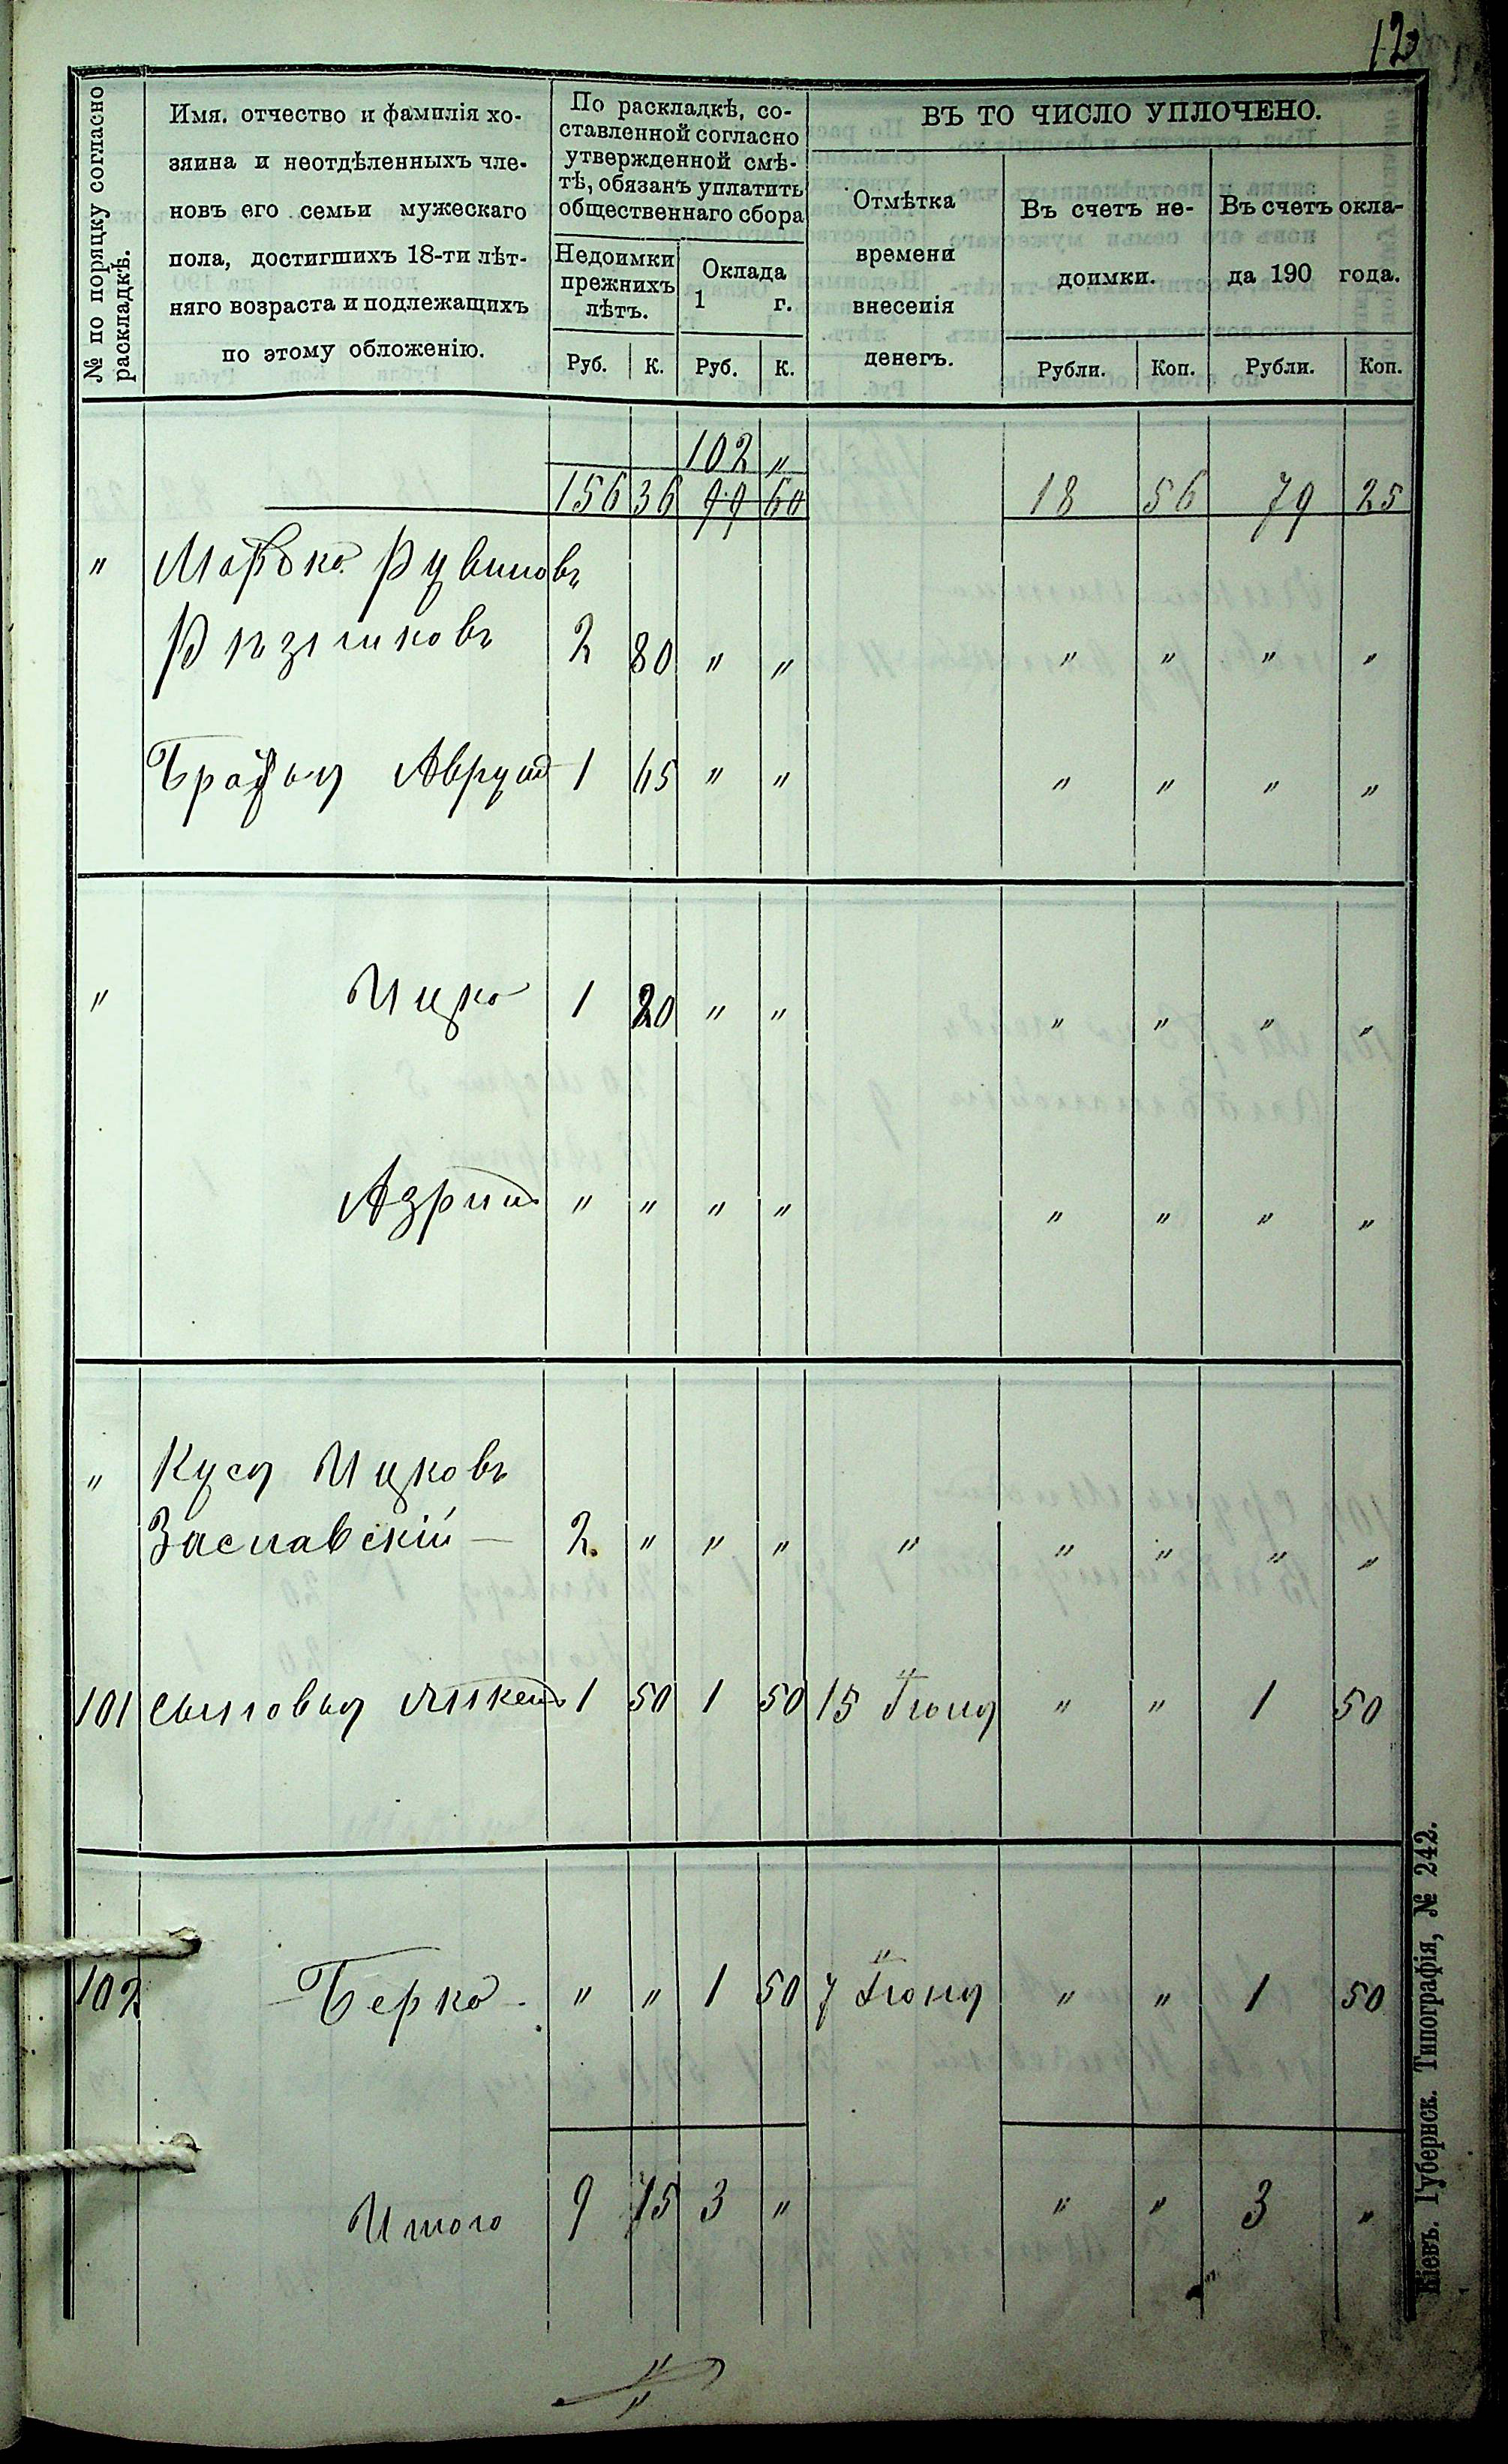 12
№ по порядку согласно раскладкѣ.
Имя, отчество и фамилія хо-
зяина и неотдѣленныхъ чле-
новъ его семьи мужескаго
пола, достигшихъ 18-ти лѣт-
няго возраста и подлежащихъ
по этому обложенію.
По раскладкѣ, со-
ставленной согласно
утвержденной смѣ-
тѣ, обязанъ уплатить
общественнаго сбора
Недоимки
прежнихъ
лѣтъ.
Оклада
1 г.
Руб. К. Руб. К.
ВЪ ТО ЧИСЛО УПЛОЧЕНО.
Отмѣтка
времени
внесенія
денегъ.
Въ счетъ не-
доимки.
Въ счетъ окла-
да 190 года.
Рубли. Коп. Рубли. Коп.
102 „
156 36 99 60 18 56 79 25
„ Марѣко Рувиновъ
2 80 „ „ „ „ „ „
Братья Аврумъ 1 65 „ „ „ „ „ „
„ Ицко 1 20 „ „ „ „ „ „
Азріилъ „ „ „ „ „ „ „ „
„ Куся Ицковъ
Заславскій — 2. „ „ „ „ „ „ „ „
101 Сыновья 1 50 1 50 15 Іюня „ „ 1 50
102 Берко „ „ 1 50 7 Іюня „ „ 1 50
Итого 9 15 3 „ „ „ 3 „
Кіевъ. Губернск. Типографія, № 242.